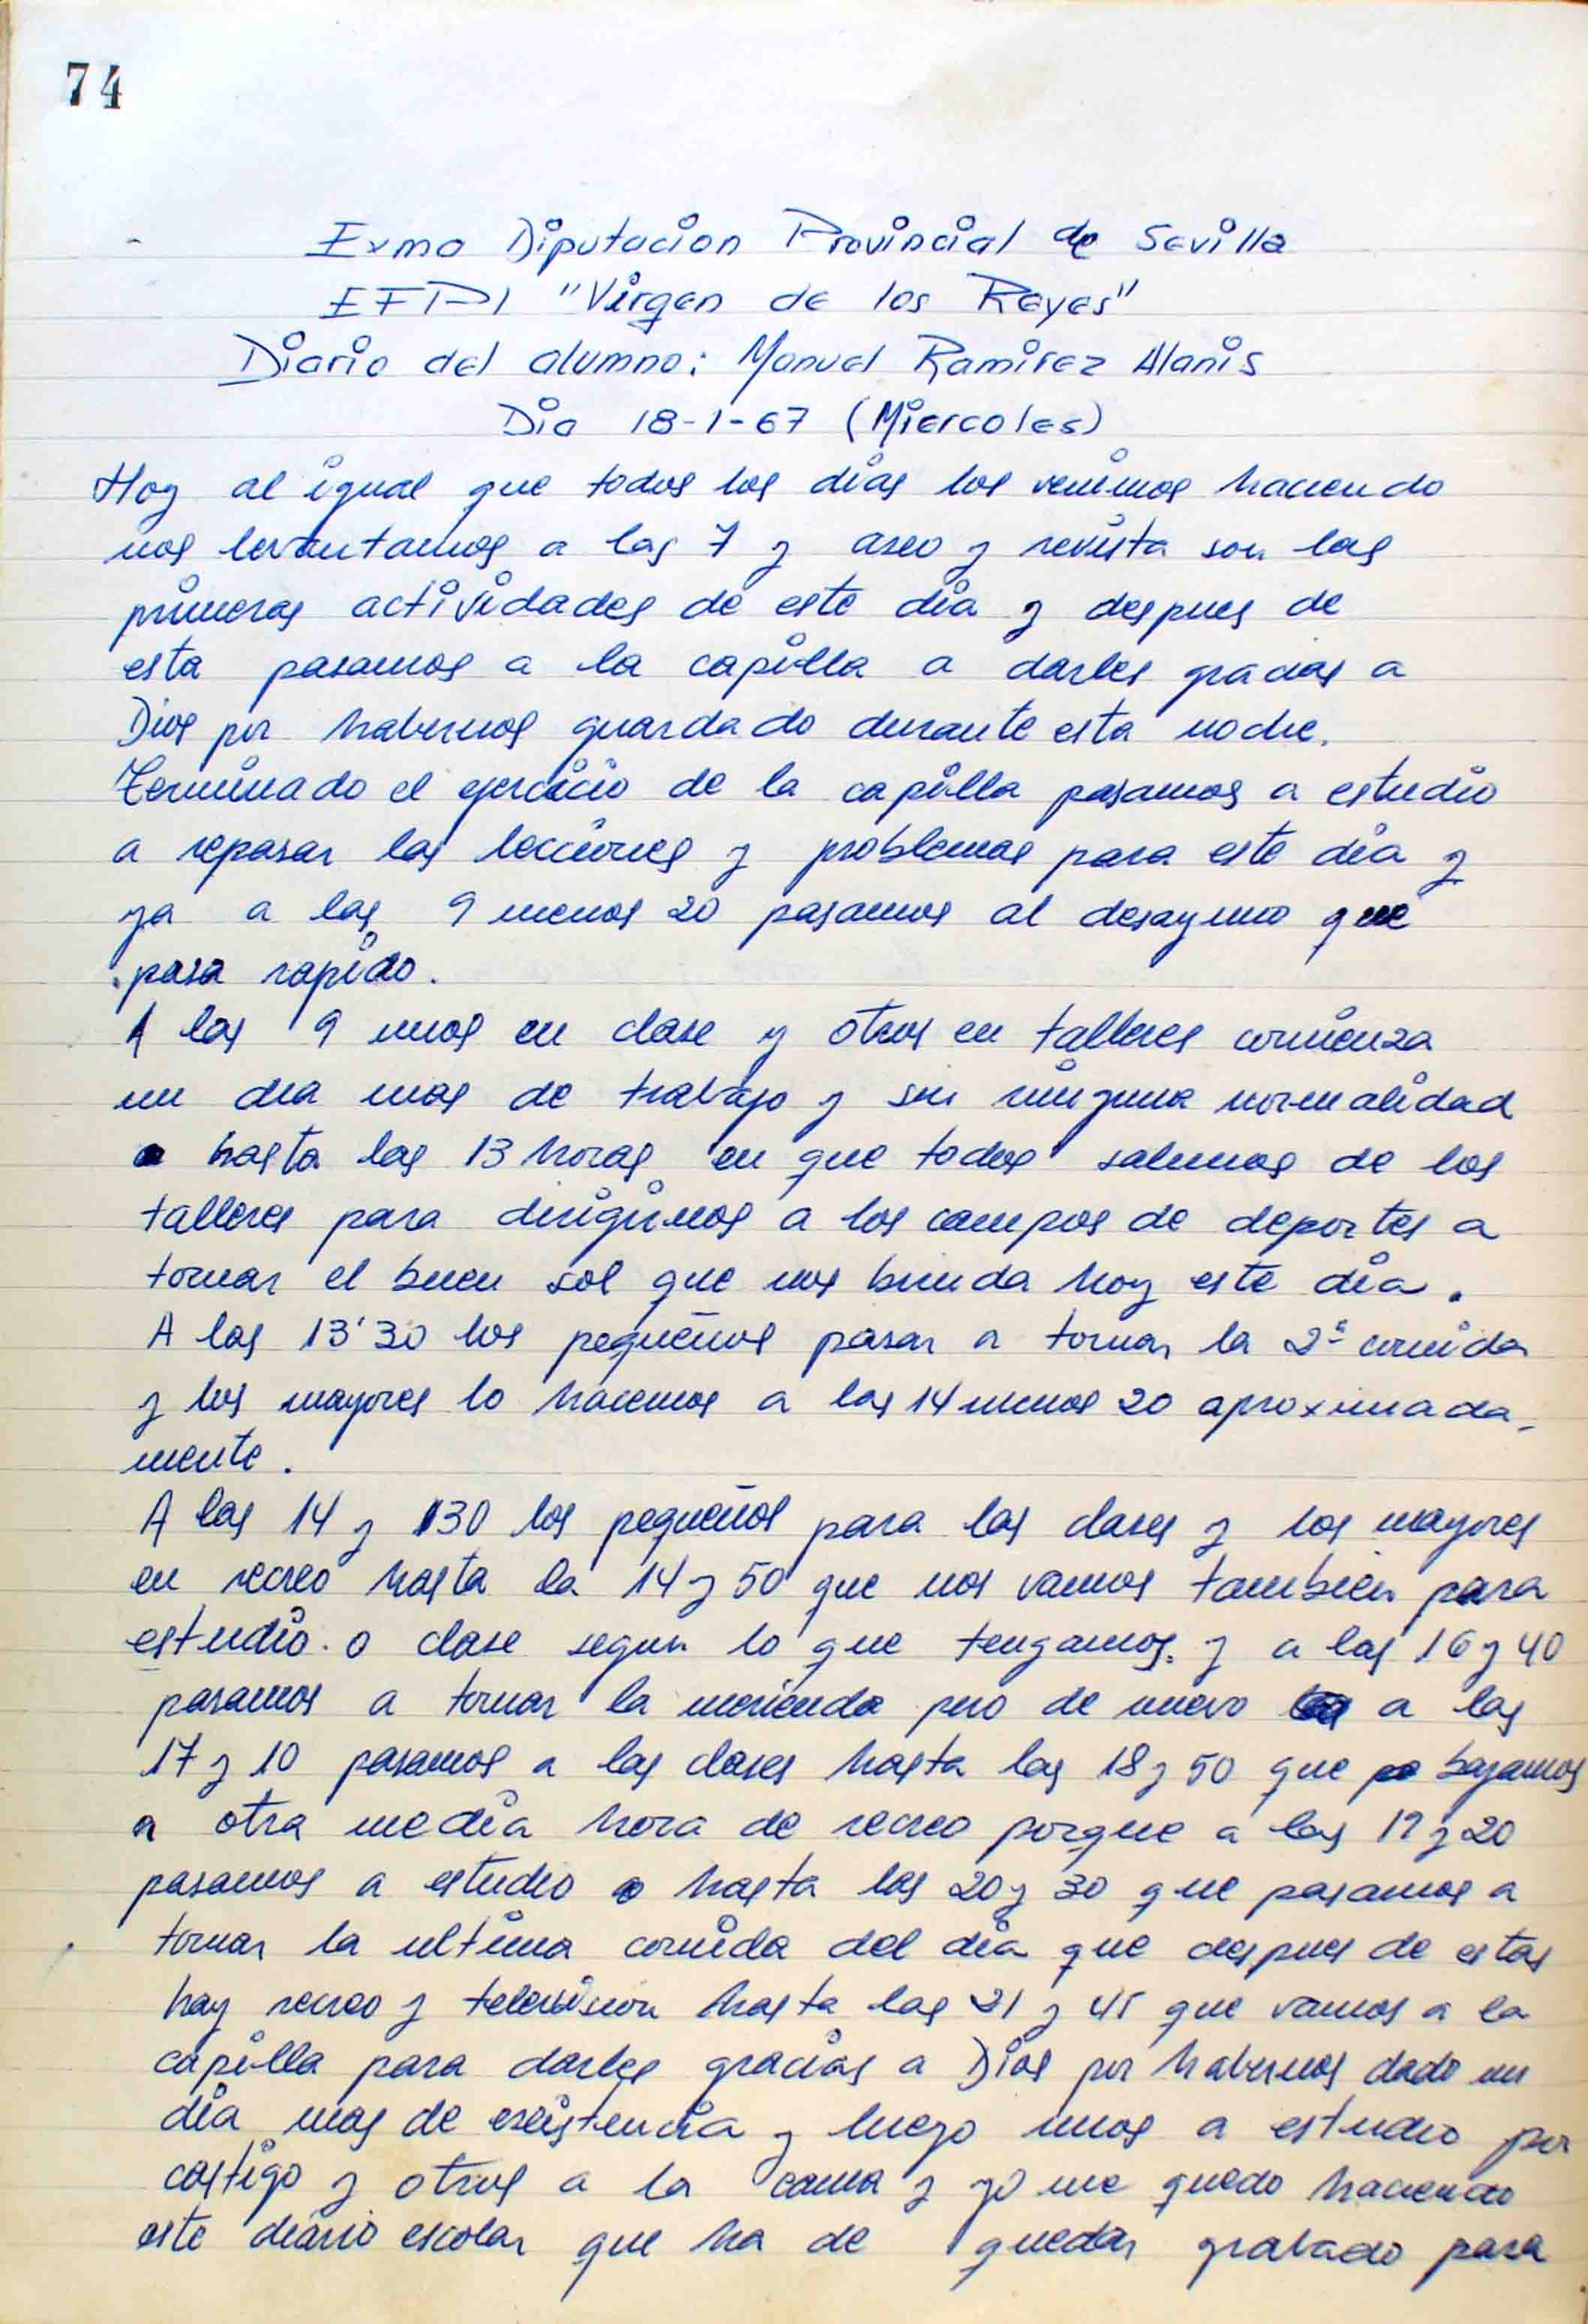 74
Exmo Diputacion Provincial de Sevilla
EFPI "Virgen de los Reyes"
Diario del alumno: Manuel Ramirez Alanis
Dia 18-1-67 (Miercoles)
Hoy al igual que todos los dias los venimos haciendo
nos levantamos a las 7 y aseo y revista son las
primeras actividades de este dia y despues de
esta pasamos a la capilla a darles gracias a
Dios por habernos guardado durante esta noche.
Terminado el ejercicio de la capilla pasamos a estudio
a repasar las lecciones y problemas para este dia y
ya a las 9 menos 20 pasamos al desayuno que
pasa rapido.
A las 9 unos en clase y otros en talleres comienza
un dia mas de trabajo y sin ninguna normalidad
hasta las 13 horas en que todos salimos de los
talleres para dirigirnos a los campos de deportes a
tomar el buen sol que nos brinda hoy este dia.
A las 13'30 los pequeños pasan a tomar la 2ª comida
y los mayores lo hacemos a las 14 menos 20 aproximada-
mente.
A las 14 y 30 los pequeños para las clases y los mayores
en recreo hasta la 14 y 50 que nos vamos tambien para
estudio o clase segun lo que tengamos. y a las 16 y 40
pasamos a tomar la merienda pero de nuevo a las
17 y 10 pasamos a las clases hasta las 18 y 50 que bajamos
a otra media hora de recreo porque a las 19 y 20
pasamos a estudio hasta las 20 y 30 que pasamos a
tomar la ultima comida del dia que despues de estas
hay recreo y television hasta las 21 y 45 que vamos a la
capilla para darles gracias a Dios por habernos dado un
dia mas de existencia y luego unos a estudio por
castigo y otros a la cama y yo me quedo haciendo
este diario escolar que ha de quedar grabado para